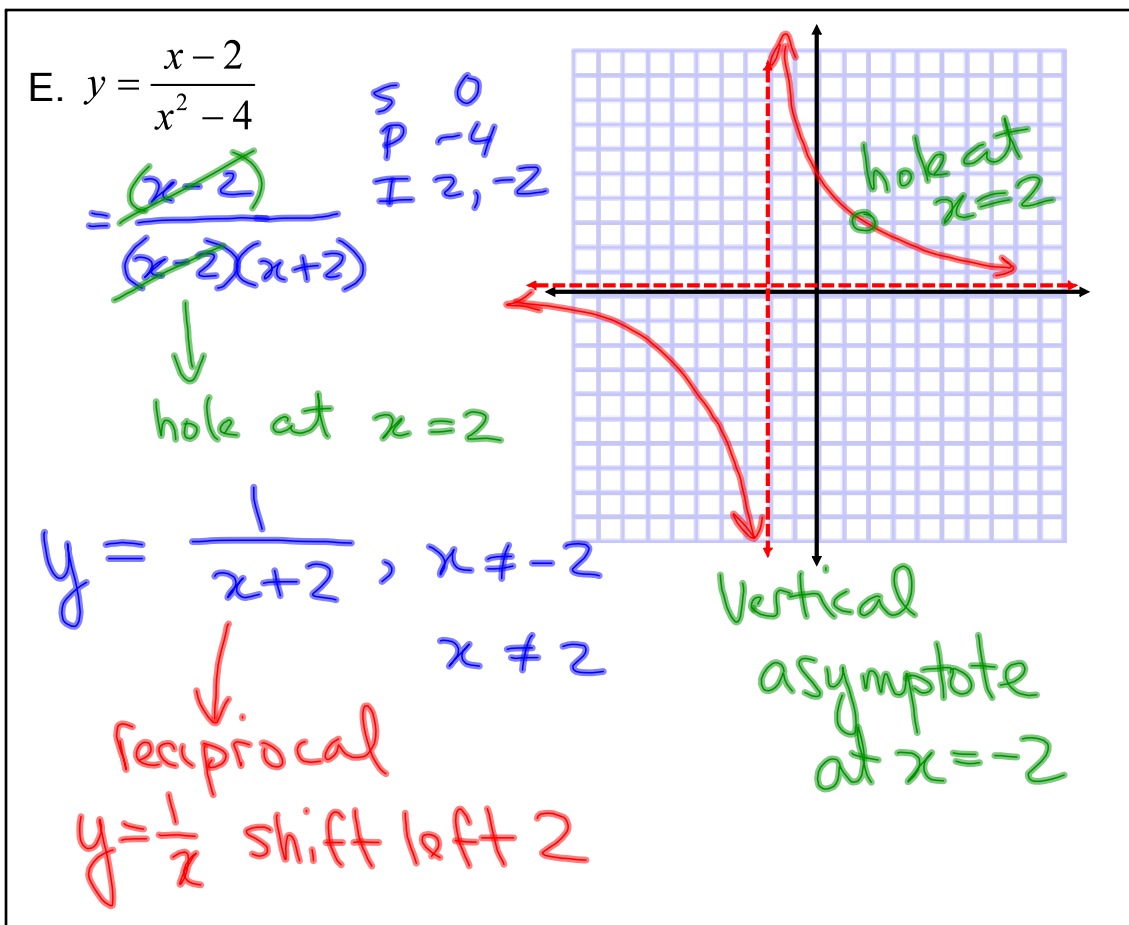 E. y = (x − 2)/(x² − 4)
S 0
P -4
I 2, -2
= (x-2)/((x-2)(x+2))
hole at x=2
y = 1/(x+2), x ≠ -2
x ≠ 2
reciprocal
y = 1/x shift left 2
hole at
x=2
Vertical
asymptote
at x = -2